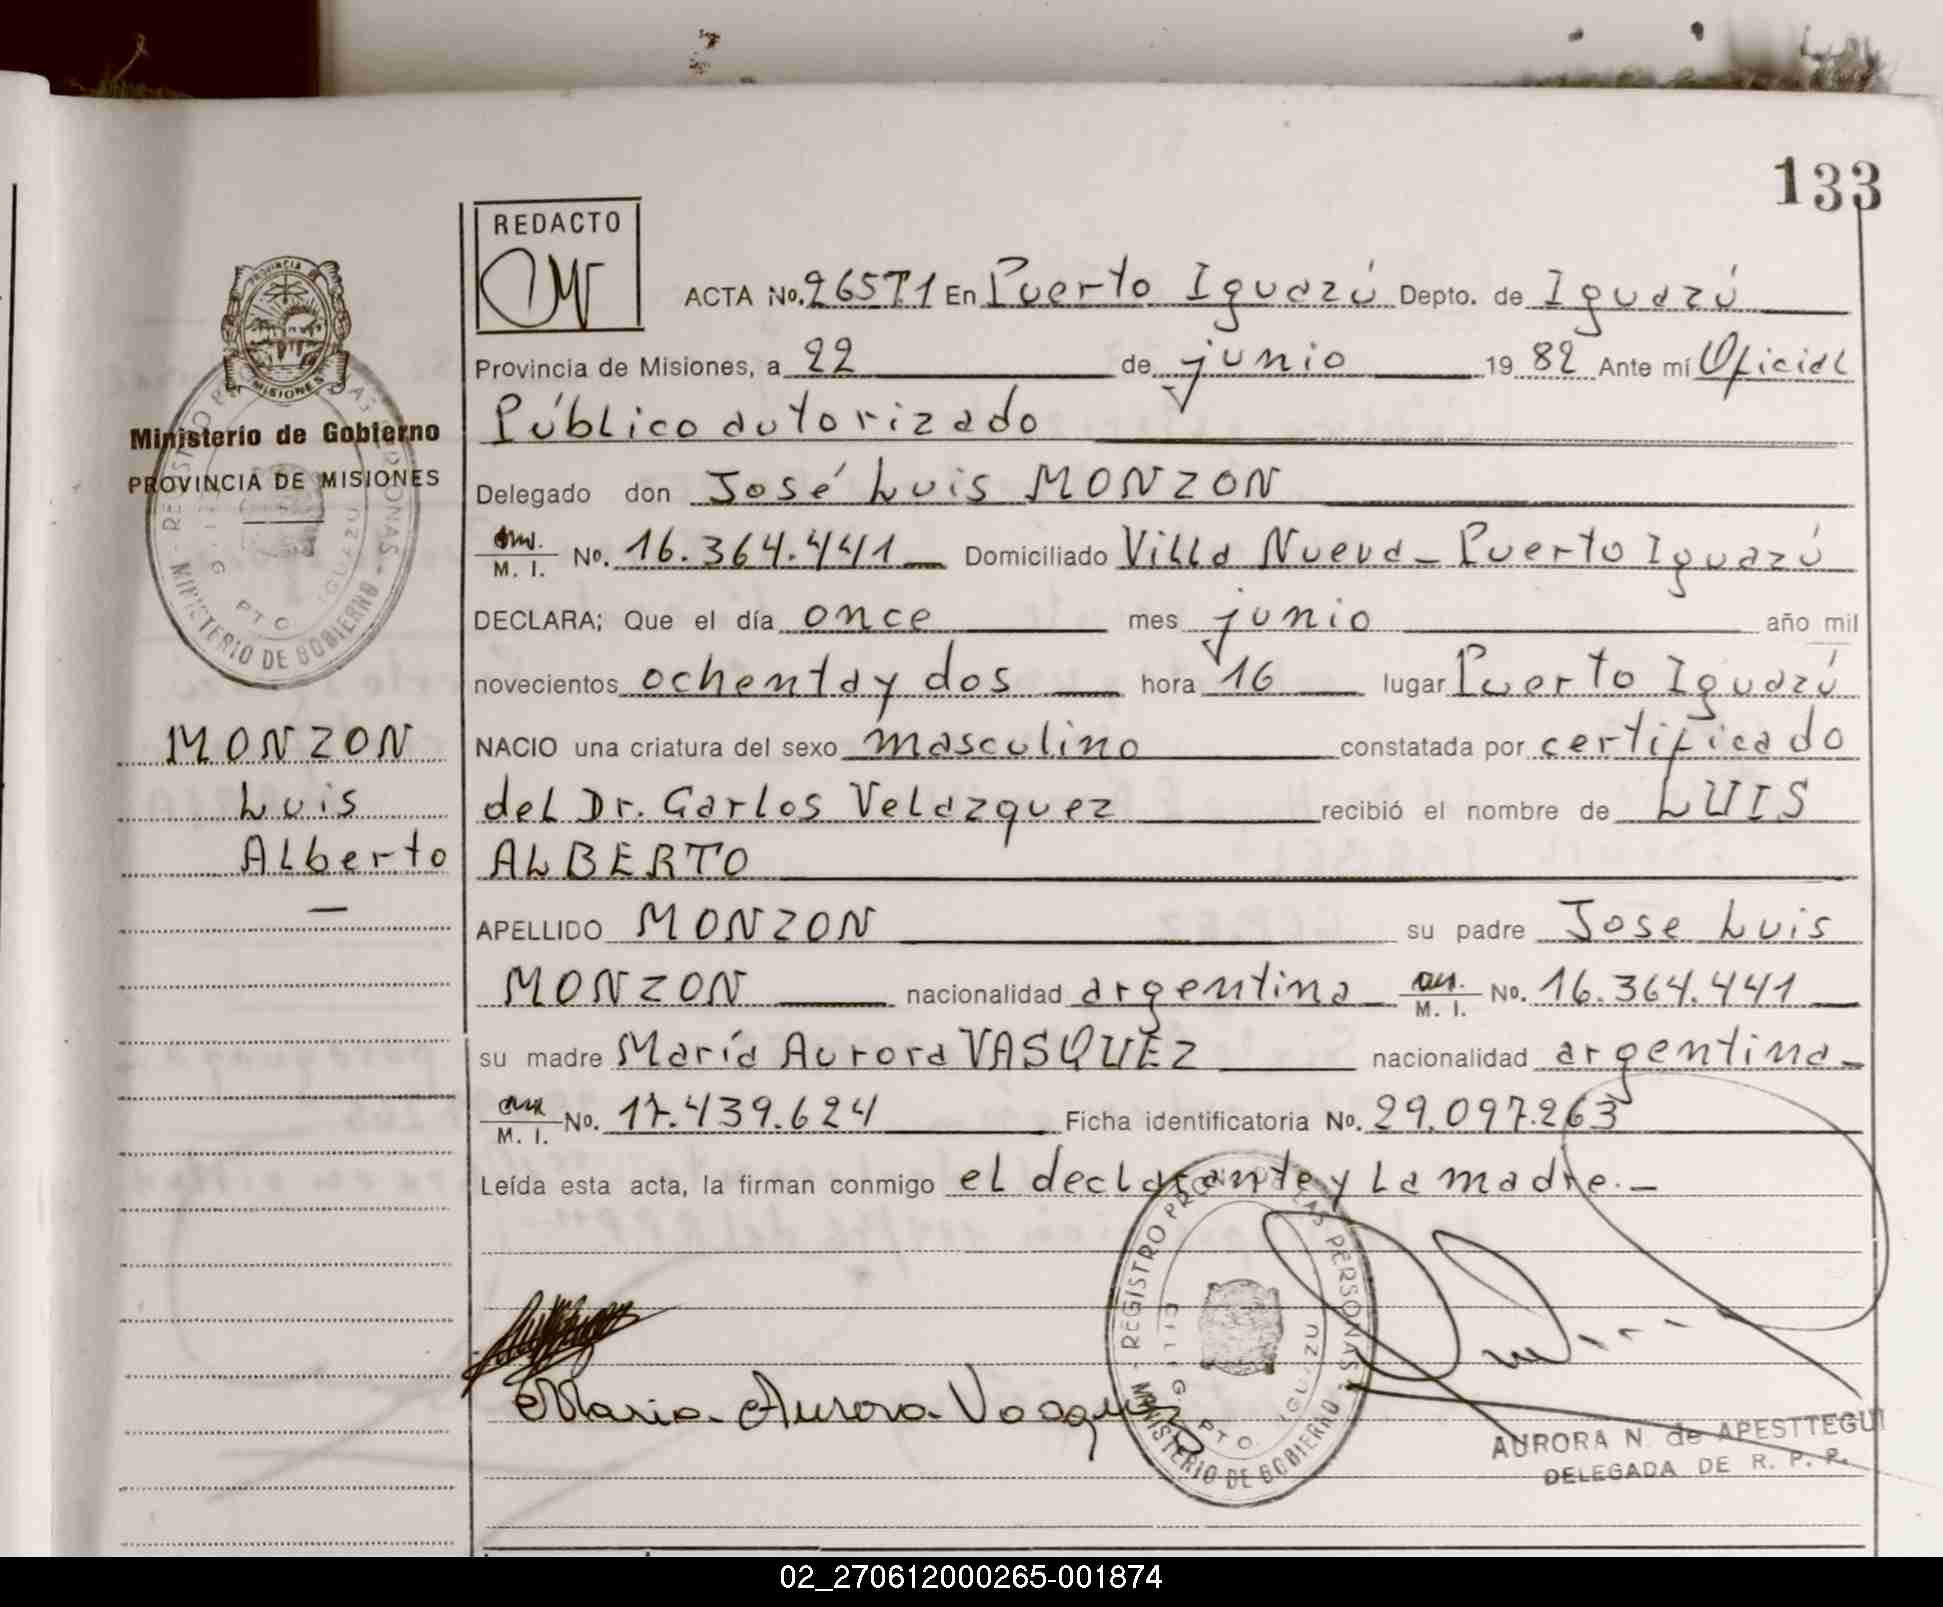 133
REDACTO
ACTA No. 2657T1 En Puerto Iguazú Depto. de Iguazú
Provincia de Misiones, a 22 de junio 19 82 Ante mí Oficial
Público autorizado
Delegado don José Luis MONZON
M. I. No. 16.364.441 Domiciliado Villa Nueva - Puerto Iguazú
DECLARA; Que el día once mes junio año mil
novecientos ochenta y dos hora 16 lugar Puerto Iguazú
NACIO una criatura del sexo masculino constatada por certificado
del Dr. Carlos Velazquez recibió el nombre de LUIS
ALBERTO
APELLIDO MONZON su padre Jose Luis
MONZON nacionalidad argentina M. I. No. 16.364.441
su madre María Aurora VASQUEZ nacionalidad argentina -
M. I. No. 17.439.624 Ficha identificatoria No. 29.097.263
Leída esta acta, la firman conmigo el declarante y la madre. -
Maria Aurora Vasquez
REGISTRO PROV. DE LAS PERSONAS - MINISTERIO DE GOBIERNO
PTO. IGUAZU
AURORA N. de APESTTEGUI
DELEGADA DE R. P. P.
PROVINCIA MISIONES
Ministerio de Gobierno
PROVINCIA DE MISIONES
MINISTERIO DE GOBIERNO
PTO. IGUAZU
MONZON
Luis
Alberto
02_270612000265-001874